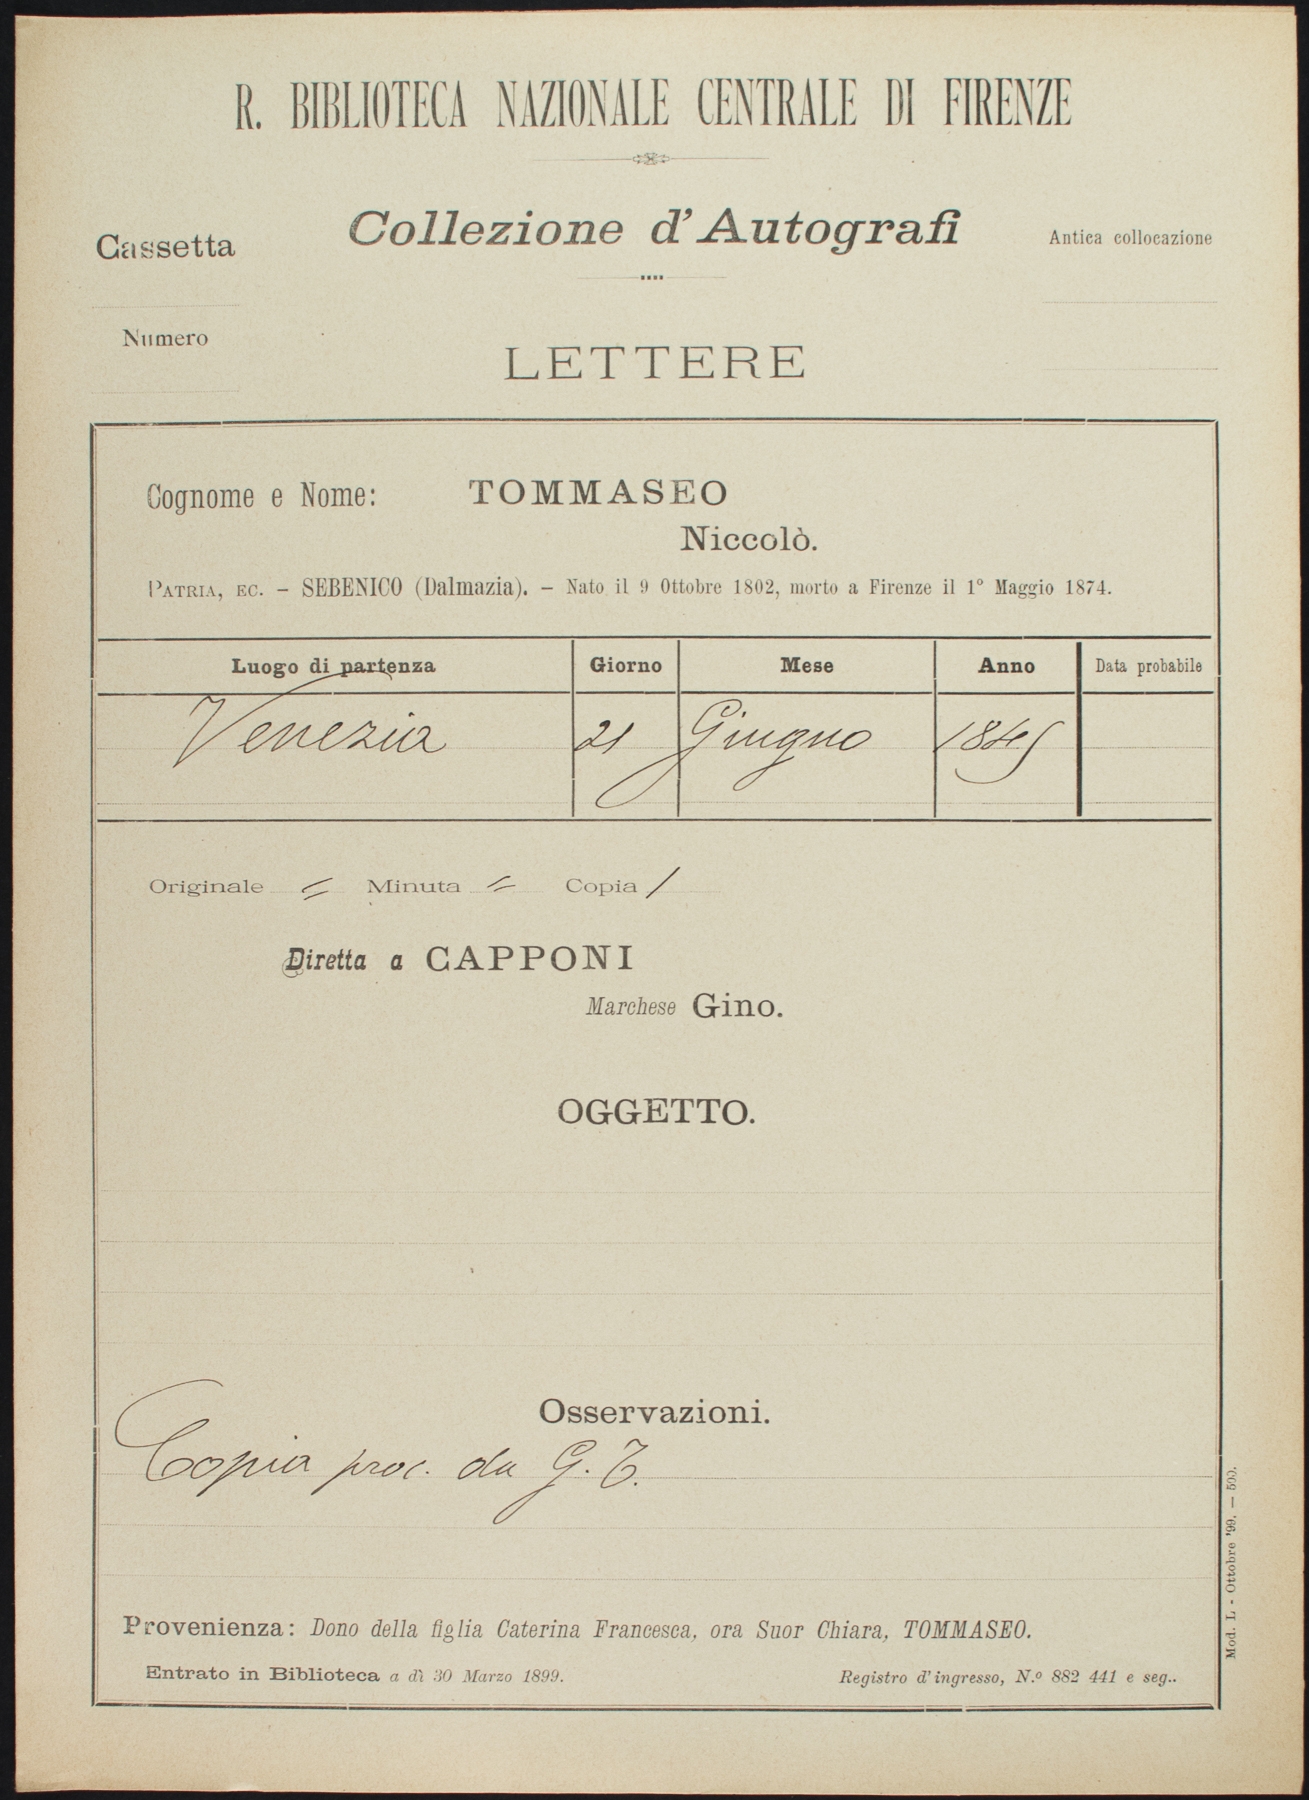 R. BIBLIOTECA NAZIONALE CENTRALE DI FIRENZE
Cassetta
Collezione d'Autografi
Antica collocazione
Numero
LETTERE
Cognome e Nome: TOMMASEO
Niccolò.
PATRIA, EC. – SEBENICO (Dalmazia). – Nato il 9 Ottobre 1802, morto a Firenze il 1° Maggio 1874.
Luogo di partenza Giorno Mese Anno Data probabile
Venezia 21 Giugno 1845
Originale = Minuta = Copia /
Diretta a CAPPONI
Marchese Gino.
OGGETTO.
Osservazioni.
Copia proc. da G. T.
Provenienza: Dono della figlia Caterina Francesca, ora Suor Chiara, TOMMASEO.
Entrato in Biblioteca a dì 30 Marzo 1899.
Registro d'ingresso, N.º 882 441 e seg..
Mod. L - Ottobre '99. — 500.